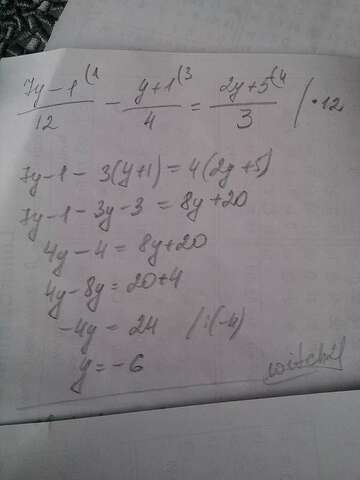 7y-1(1/12 - y+1(3/4 = 2y+5(4/3 /·12
7y-1-3(y+1)=4(2y+5)
7y-1-3y-3=8y+20
4y-4=8y+20
4y-8y=20+4
-4y=24 /:(-4)
y=-6